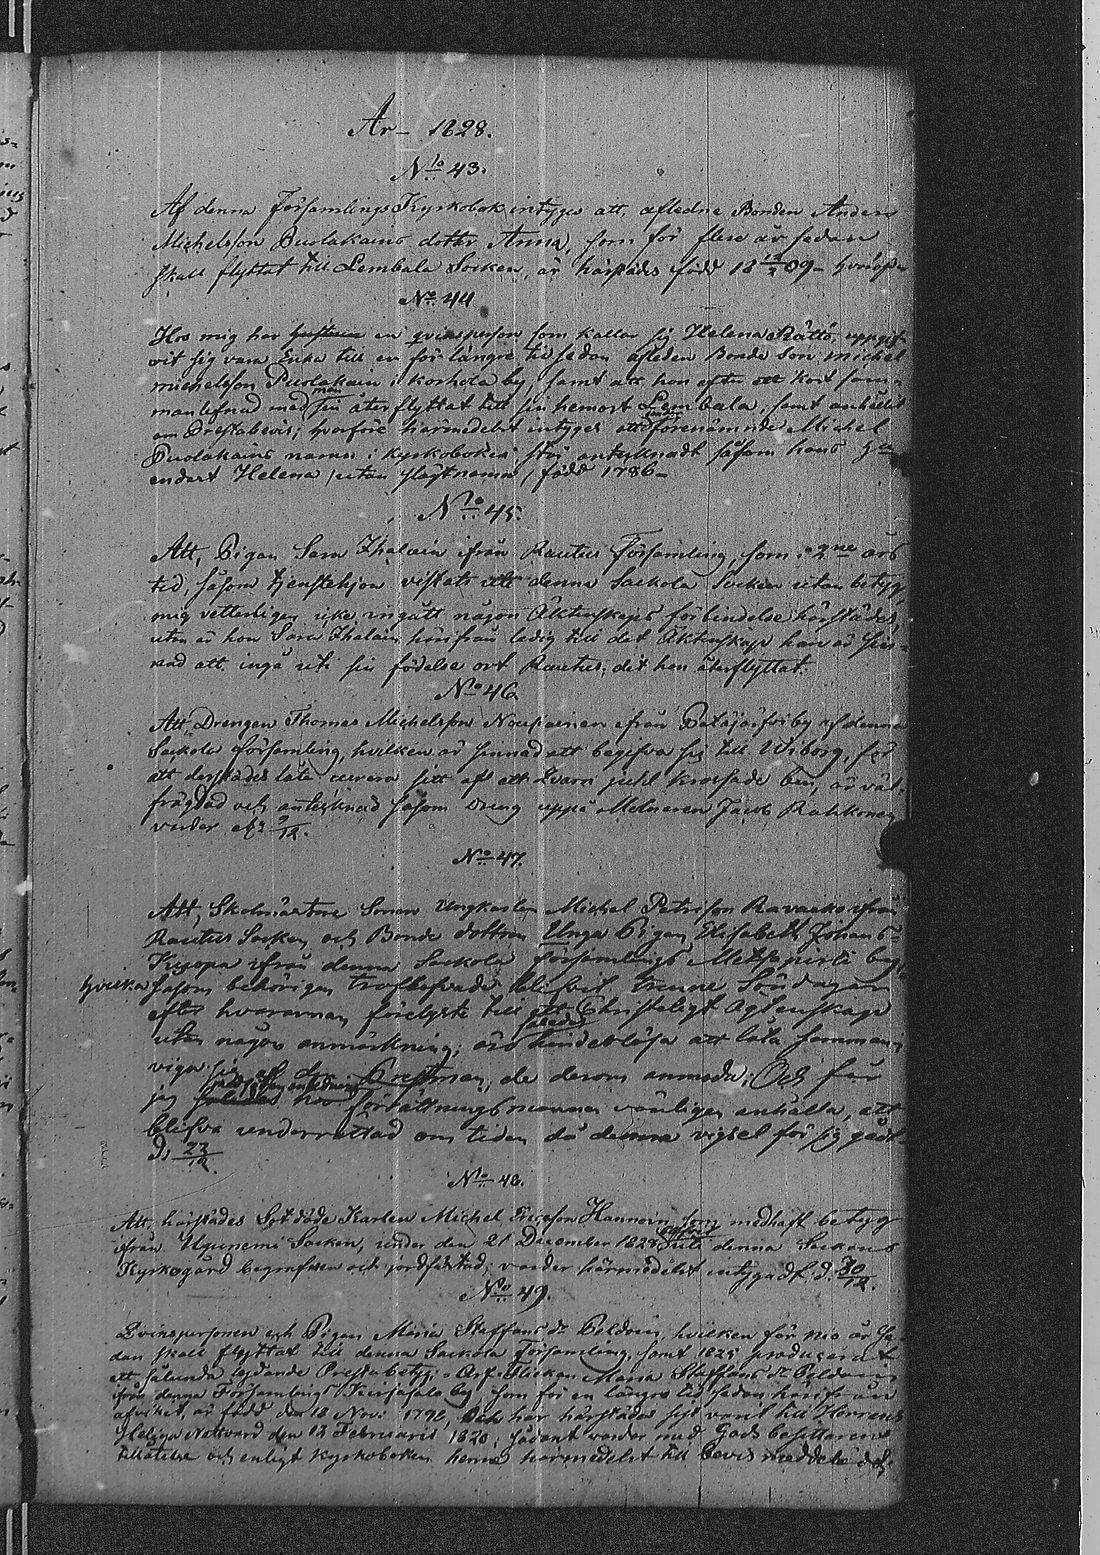 År 1828.
No 43.
Af denna Församlings Kyrkobok intygas att, afledne Bonden Anders
Michelsson Puolakains dotter Anna, som för flere år sedan
skall flyttat till Lembala Socken, är härstädes född 18 12/2 09
No 44
Hos mig har en qvinsperson som kallar sig Helena Rättö, uppgif-
vit sig vara Enka till en för längre tid sedan afleden Bonde son Michel
Michelsson Puolakain i Korhola by, samt att hon efter kort sam-
manlefnad med sin man återflyttat till sin hemort Lembala, samt anhållit
om Prestabevis; hvarföre härmedelst intygas att förenämnde Michel
Puolakains namn i kyrkoboken står antecknadt såsom hans
endast Helena, utan slägtnamn, född 1786 –
No 45.
Att, Pigan Sara Ihalain ifrån Rautus Församling som i 2ne års
tid, såsom tjenstehjon vistats uti denna Sackola Socken utan betyg
mig vetterligen icke ingått någon Äktenskaps förbindelse härstädes,
utan är hon Sara Ihalain härifrån ledig till det Äktenskap hon är sin-
nad att ingå uti sin födelse ort Rautus, dit hon återflyttat.
No 46
Att, Drengen Thomas Michelsson Nousiainen ifrån Petäjärfvi by af denna
Sackola församling, hvilken är sinnad att begifva sig till Wiborg, för
att derstädes låta curera sitt af ett qvarn juhl krossade ben, är väl-
frägdad och antecknad såsom dreng uppå Mölnaren Jacob Ratikonen
varder af 9/12.
No 47.
Att, Skolmästare Sonen Ungkarlen Michel Petersson Ravasko ifrån
Rautus Socken och Bonde dottren Unga Pigan Elisabeth Johans-
Kuxopa ifrån denna Sackola församlings Metsäpirti by,
hvilka såsom behörigen trolofvade blifvit trenne Söndagar
efter hvarannan förelyste till ett Christeligt Ägtenskap
utan någon anmärkning; äro således hinderlösa att låta samman-
viga sig af den Prestman, de derom anmoda; Och får
jag hos förrättningsmannen vänligen anhålla, att
blifva underrättad om tiden då denna vigsel för sig gådt
D. 23/12.
No 48.
Att, härstädes Sot döde Karlen Michel Ericsson Hannoin, som medhaft betyg
ifrån Uguniemi Socken, under den 21 December 1828 blifvit uti denna Sockens
Kyrkogård begrafven och jordfästad; varder härmedelst intygadt d. 30/12.
No 49.
Qvinspersonen och Pigan Maria Staffans dr Peldoin, hvilken för nio år se-
dan skall flyttat till denna Sackola Församling, samt 1825 producerat
ett sålunda lydande Prestabetyg: Arf. Flickan Maria Staffans dr Peldoin
ifrån denna Församlings by, som för en längre tid sedan härifrån
afvikit, är född den 18 Nov. 1792, och har härstädes sist varit till Herrans
Heliga Nattvard den 12 Februarii 1820; sådant varder med Gods besittarens
tillåtelse och enligt kyrkoboken henne härmedelst till bevis meddeladt,